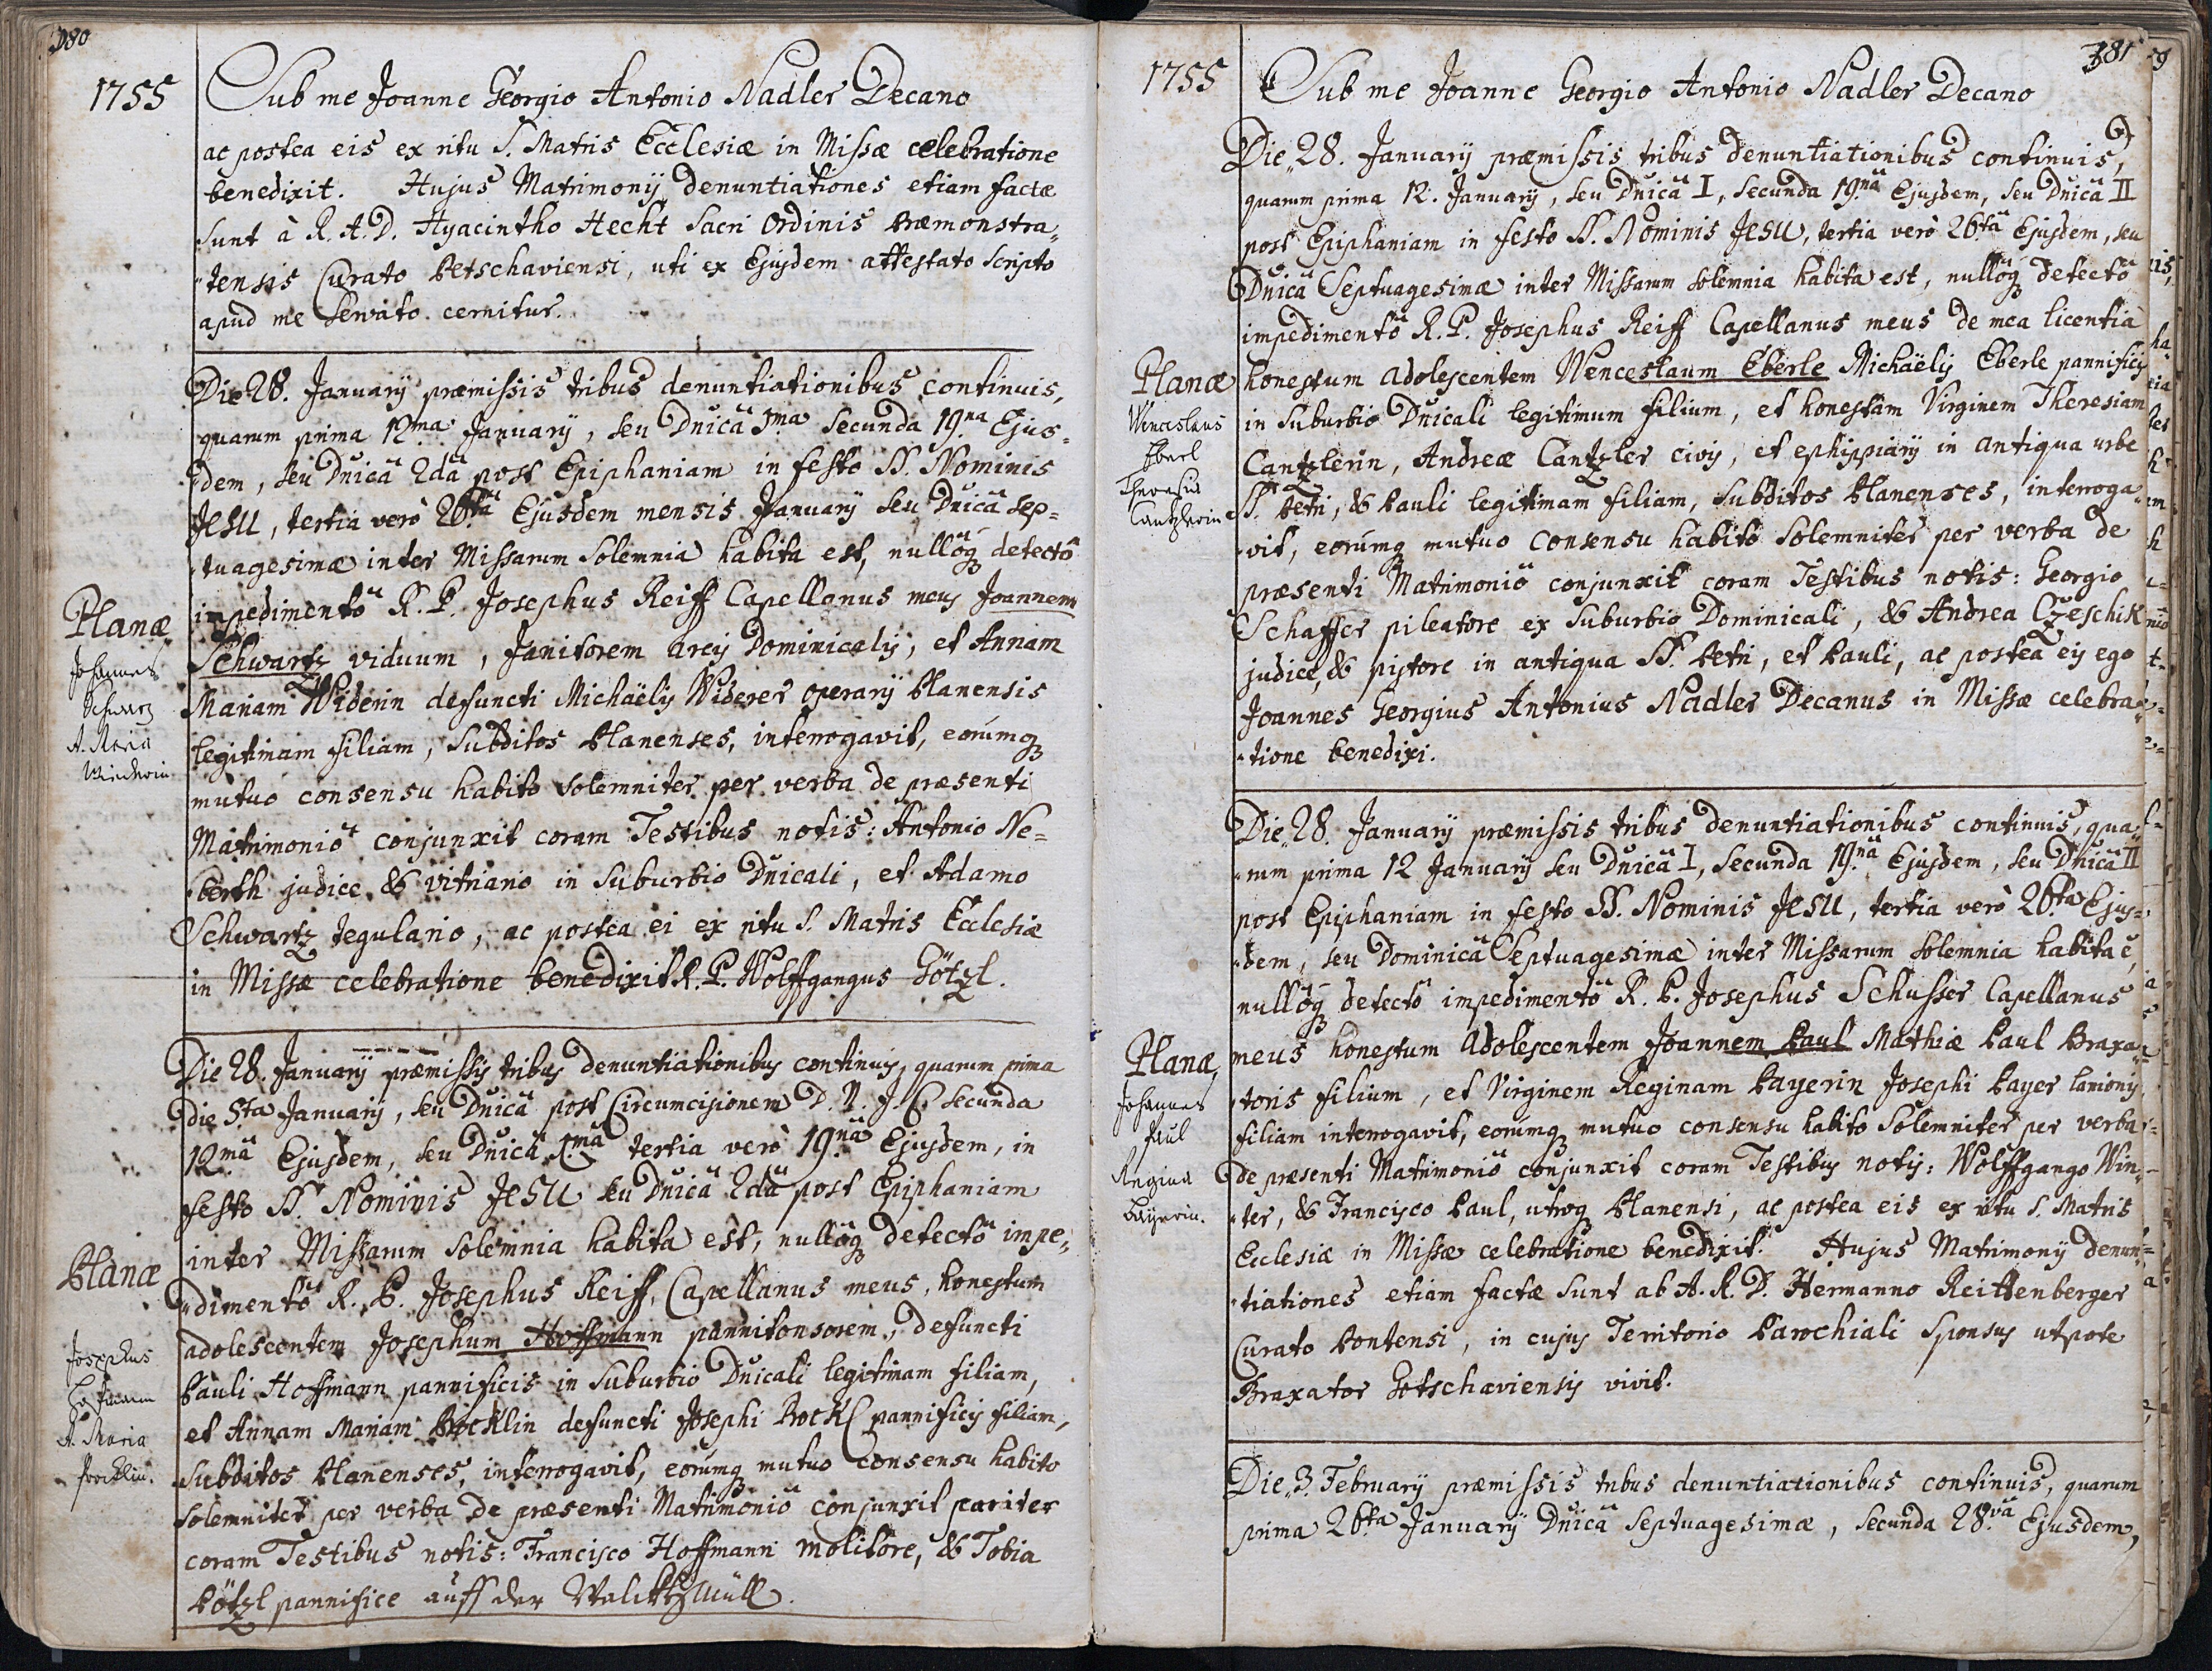 380
1755
Sub me Joanne Georgio Antonio Nadler Decano
ac postea eis ex ritu S. Matris Ecclesiæ in Missæ celebratione
benedixit. Hujus Matrimonij denuntiationes etiam factæ
sunt à R. A. D. Hyacintho Hecht Sacri Ordinis Præmonstra„
„tensis Curato Petschaviensi, uti ex Ejusdem attestato scripto
apud me servato cernitur.
Die 28. Januarij præmissis tribus denuntiationibus continuis,
quarum prima 12.ma Januarij, seu Dnicâ I.ma secunda 19.na Ejus=
„dem, seu Dnicâ 2dâ post Epiphaniam in festo SS. Nominis
JESU, tertia verò 26.ta Ejusdem mensis Januarij seu Dnicâ sep=
„tuagesimæ inter Missarum solemnia habita est, nullôq detectô
impedimentô R. P. Josephus Reiff Capellanus meus Joannem
Schwartz viduum, Janitorem arcis Dominicalis, et Annam
Mariam Widerin defuncti Michaëlis Widerer operarij Planensis
legitimam filiam, Subditos Planenses, interrogavit, eorumq
mutuo consensu habito solemniter per verba de præsenti
Matrimoniô conjunxit coram Testibus notis: Antonio Ne=
„berth judice & vitriario in Suburbio Dnicali, et Adamo
Schwartz tegulario, ac postea ei ex ritu S. Matris Ecclesiæ
in Missæ celebratione benedixit R. P. Wolffgangus Götzl.
Planæ
Johannes
Schwarz
A. Maria
Die 28. Januarij præmissis tribus denuntiationibus continuis, quarum prima
die 5.ta Januarij, seu Dnicâ post Circumcisionem D. N. J. C. secunda
12.mâ Ejusdem, seu Dnicâ I.mâ tertia verò 19.nâ Ejusdem, in
festo SS. Nominis JESU seu Dnicâ 2dâ post Epiphaniam
inter Missarum solemnia habita est, nullôq detectô impe„
„dimentô R. P. Josephus Reiff, Capellanus meus, honestum
adolescentem Josephum Hoffmann pannitonsorem, defuncti
Pauli Hoffmann pannificis in Suburbio Dnicali legitimam filiam,
et Annam Mariam Brocklin defuncti Josephi Brockl pannificis filiam,
Subditos Planenses, interrogavit, eorumq mutuo consensu habito
solemniter per verba de præsenti Matrimoniô conjunxit pariter
coram Testibus notis: Francisco Hoffmann molitore, & Tobia
Pötzl pannifice auff der
Planæ
Josephus
Hofmann
A. Maria
381
1755
Sub me Joanne Georgio Antonio Nadler Decano
Die„28. Januarij præmissis tribus denuntiationibus continuis,
quarum prima 12. Januarij, seu Dnicâ I, secunda 19.nâ Ejusdem, seu Dnicâ II
post Epiphaniam in festo SS. Nominis JESU, tertia verò 26.tâ Ejusdem, seu
Dnicâ Septuagesimæ inter Missarum solemnia habita est, nullôq detectô
impedimentô R. P. Josephus Reiff Capellanus meus de mea licentia
honestum adolescentem Wenceslaum Eberle Michaëlis Eberle pannificis
in Suburbio Dnicali legitimum filium, et honestam Virginem Theresiam
Cantzlerin, Andreæ Cantzler civis, et ephippiarij in antiqua urbe
SS. Petri, & Pauli legitimam filiam, Subditos Planenses, interroga„
„vit, eorumq mutuo consensu habito solemniter per verba de
præsenti Matrimoniô conjunxit coram Testibus notis: Georgio
Schaffer pileatore ex Suburbio Dominicali, & Andrea Czeschik
judice, & pistore in antiqua SS. Petri, et Pauli, ac postea eis ego
Joannes Georgius Antonius Nadler Decanus in Missæ celebra„
„tione benedixi.
Planæ
Wenceslaus
Eberl
Theresia
Cantzlerin
Die„28. Januarij præmissis tribus denuntiationibus continuis, qua„
„rum prima 12 Januarij seu Dnicâ I, secunda 19.nâ Ejusdem, seu Dnicâ II
post Epiphaniam in festo SS. Nominis JESU, tertia verò 26.ta Ejus=
„dem, seu Dominicâ Septuagesimæ inter Missarum solemnia habita ē,
nullôq detectô impedimentô R. P. Josephus Schusser Capellanus
meus honestum adolescentem Joannem Paul Mathiæ Paul Braxa„
„toris filium, et Virginem Reginam Payerin Josephi Payer lanionis
filiam interrogavit, eorumq mutuo consensu habito solemniter per verba
de præsenti Matrimoniô conjunxit coram Testibus notis: Wolffgango Win„
„ter, & Francisco Paul, utroq Planensi, ac postea eis ex ritu S. Matris
Ecclesiæ in Missæ celebratione benedixit. Hujus Matrimonij denun„
„tiationes etiam factæ sunt ab A. R. D. Hermanno Reittenberger
Curato Pontensi, in cujus Territorio Parochiali Sponsus utpote
Braxator Gotschaviensis vivit.
Planæ
Johannes
Paul
Regina
Bayerin.
Die„3. Februarij præmissis tribus denuntiationibus continuis, quarum
prima 26.ta Januarij Dnicâ Septuagesimæ, secunda 28.vâ Ejusdem,